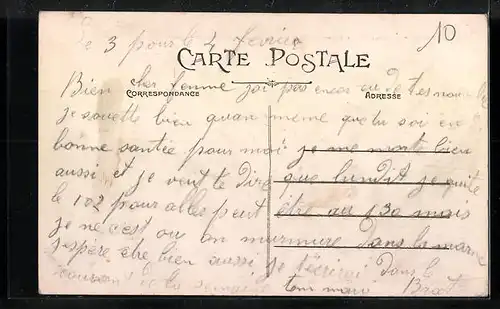 le 3 pour le 4 fevrier
10
CARTE POSTALE
Bien cher femme jai pas encor eu de tes nouvelle
CORRESPONDANCE
ADRESSE
je souette bien quan meme que tu soi en
bonne santée pour moi je me porte bien
aussi et je veut te dire que lundit je quite
le 102 pour alles peut être au 130 mais
je ne c'est ou on murmure dans la marne
j'espère être bien aussi je t'écrirai dans le
courant de la semaine ton mari